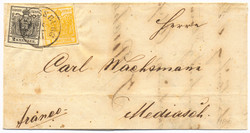 Herrn
Carl Wachsmann
franco
Mediasch